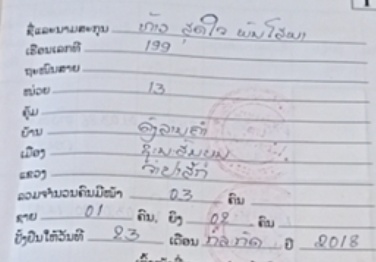 ຊື່ແລະນາມສະກຸນ ທ້າວ ສຸດໃຈ ພົມໂສພາ
ເຮືອນເລກທີ 199
ຖະໜົນສາຍ
ໜ່ວຍ 13
ຄຸ້ມ
ບ້ານ
ເມືອງ ຊະນະສົມບູນ
ແຂວງ ຈຳປາສັກ
ລວມຈຳນວນຄົນມີໜ້າ 03 ຄົນ
ຊາຍ 01 ຄົນ, ຍິງ 02 ຄົນ
ຢັ້ງຢືນໃຫ້ວັນທີ 23 ເດືອນ ກໍລະກົດ ປີ 2018